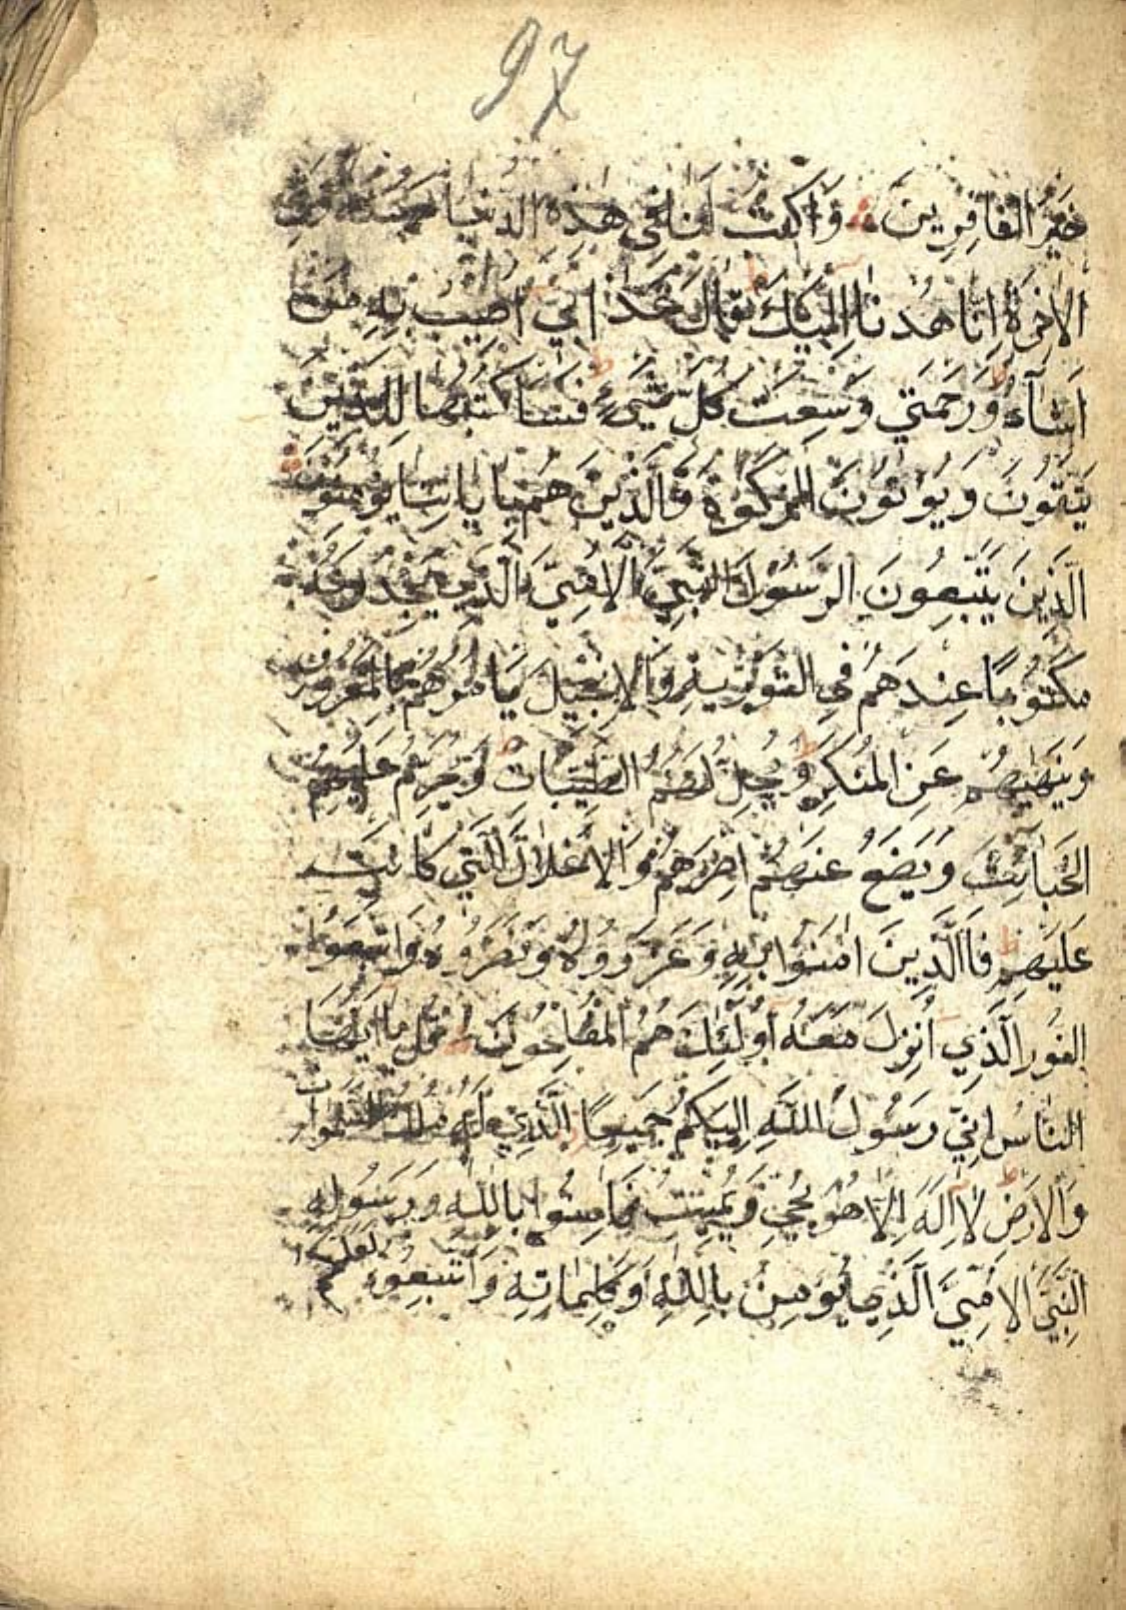 97
خَيْرُ الغَافِرِينَ وَاكْتُبْ لَنَا فِي هَذِهِ الدُّنْيَا حَسَنَةً وَفِي
الاخِرَةِ اِنَّا هُدْنَا اِلَيْكَ قَالَ عَذَابِي اُصِيبُ بِهِ مَنْ
اَشَآءُ وَرَحْمَتِي وَسِعَتْ كُلَّ شَيْءٍ فَسَاَكْتُبُهَا لِلَّذِينَ
يَتَّقُونَ وَيُؤْتُونَ الزَّكَوةَ وَالَّذِينَ هُمْ بِاٰيَاتِنَا يُؤْمِنُونَ
الَّذِينَ يَتَّبِعُونَ الرَسُولَ النَّبِيَّ الاُمِّيَّ الَّذِي يَجِدُونَهُ
مَكْتُوبًا عِنْدَهُمْ فِي التَّوْرٰيةِ وَالاِنْجِيلِ يَاْمُرُهُمْ بِالْمَعْرُوفِ
وَيَنْهٰيهُمْ عَنِ المُنْكَرِ وَيُحِلُّ لَهُمُ الطَّيِّبَاتِ وَيُحَرِّمُ عَلَيْهِمُ
الخَبَآئِثَ وَيَضَعُ عَنْهُمْ اِصْرَهُمْ وَالاَغْلَالَ الَّتِي كَانَتْ
عَلَيْهِمْ فَاالَّذِينَ اٰمَنُوا بِهِ وَعَزَّرُوهُ وَنَصَرُوهُ وَاتَّبَعُوا
النُّورَ الَّذِي اُنْزِلَ مَعَهُ اُولٰئِكَ هُمُ المُفْلِحُونَ قُلْ يَا اَيُّهَا
النَّاسُ اِنِّي رَسُولُ اللَّهِ اِلَيْكُمْ جَمِيعًا الَّذِي لَهُ مُلْكُ السَّمٰوَاتِ
وَالاَرْضِ لَا اِلَهَ اِلَّا هُوَ يُحْيِ وَيُمِيتُ فَاٰمِنُوا بِاللهِ وَرَسُولِهِ
النَّبِيِّ الاُمِّيِّ الَّذِي يُؤْمِنُ بِاللَّهِ وَكَلِمَاتِهِ وَاتَّبِعُوهُ لَعَلَّكُمْ